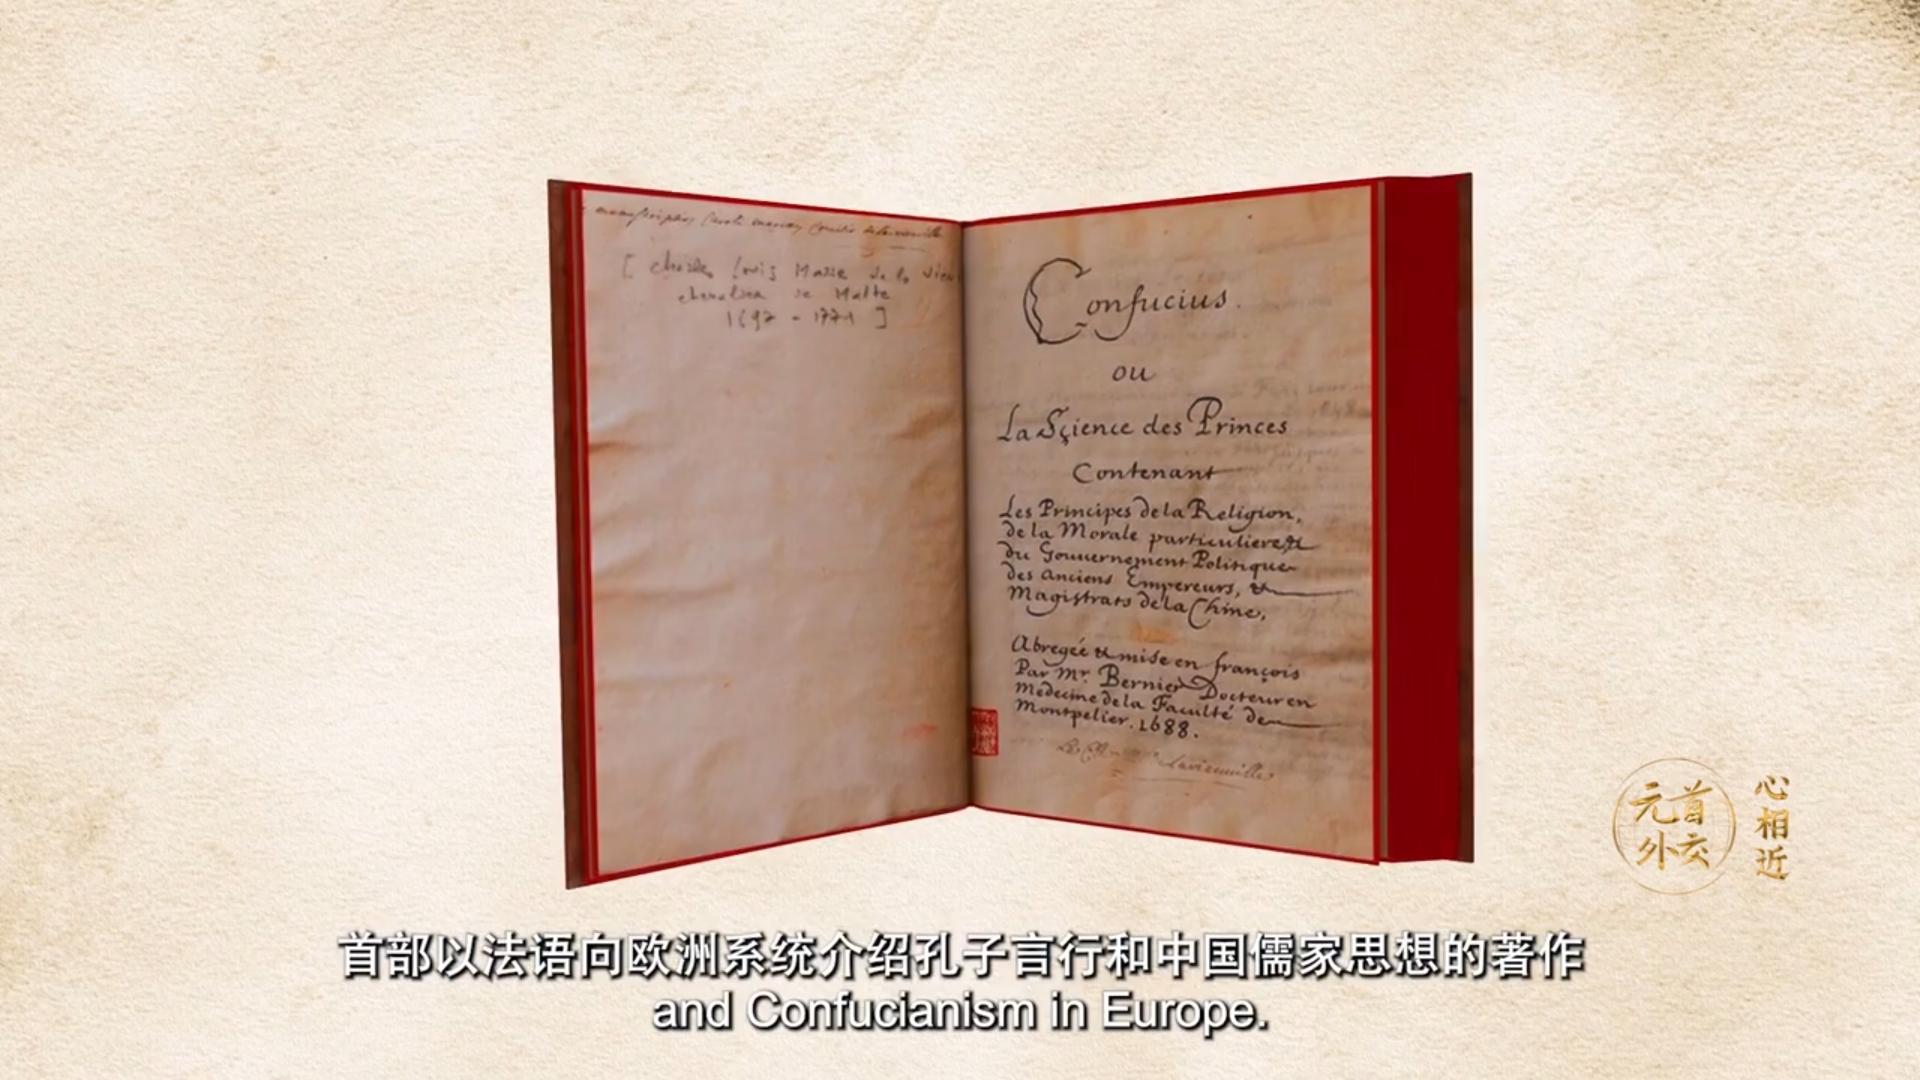 [ Charles Louis Marie de la Vieu
chevalier de Malte
1697 - 1771 ]
Confucius.
ou
La Sçience des Princes
Contenant
Les Principes de la Religion,
de la Morale particuliere, &
du Gouuernement Politique
des anciens Empereurs, &
Magistrats de la Chine,
Abregée & mise en françois
Par Mr. Bernier Docteur en
Medecine de la Faculté de
Montpelier. 1688.
元首
外交
心相近
首部以法语向欧洲系统介绍孔子言行和中国儒家思想的著作
and Confucianism in Europe.